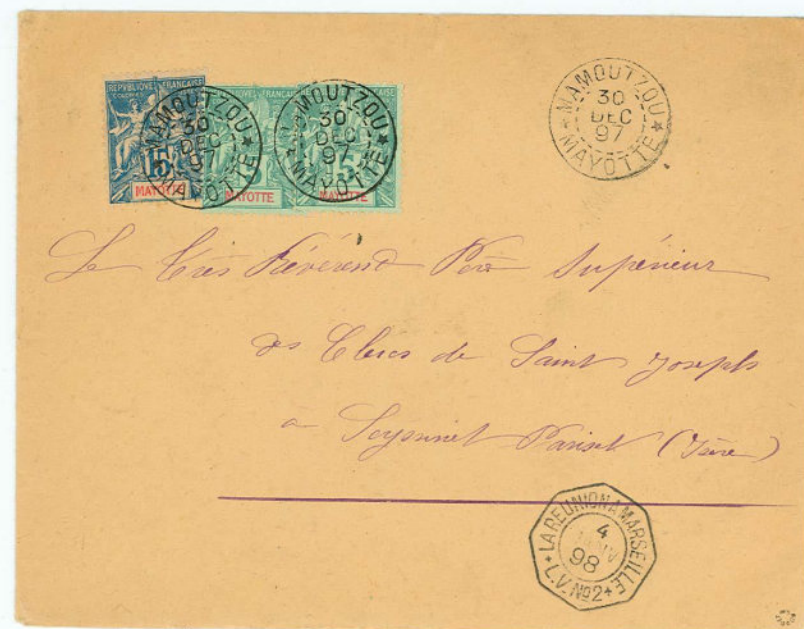 REPUBLIQUE FRANCAISE
COLONIES
15
MAYOTTE
MAYOTTE
5
MAYOTTE
MAMOUTZOU
30
DEC
97
MAYOTTE
MAMOUTZOU
30
DEC
97
MAYOTTE
MAMOUTZOU
30
DEC
97
MAYOTTE
Le Très Révérend Père Supérieur
des Clercs de Saint Joseph
à Seyssinet Pariset (Isère)
LA REUNION A MARSEILLE
4
JANV
98
L.V. No2